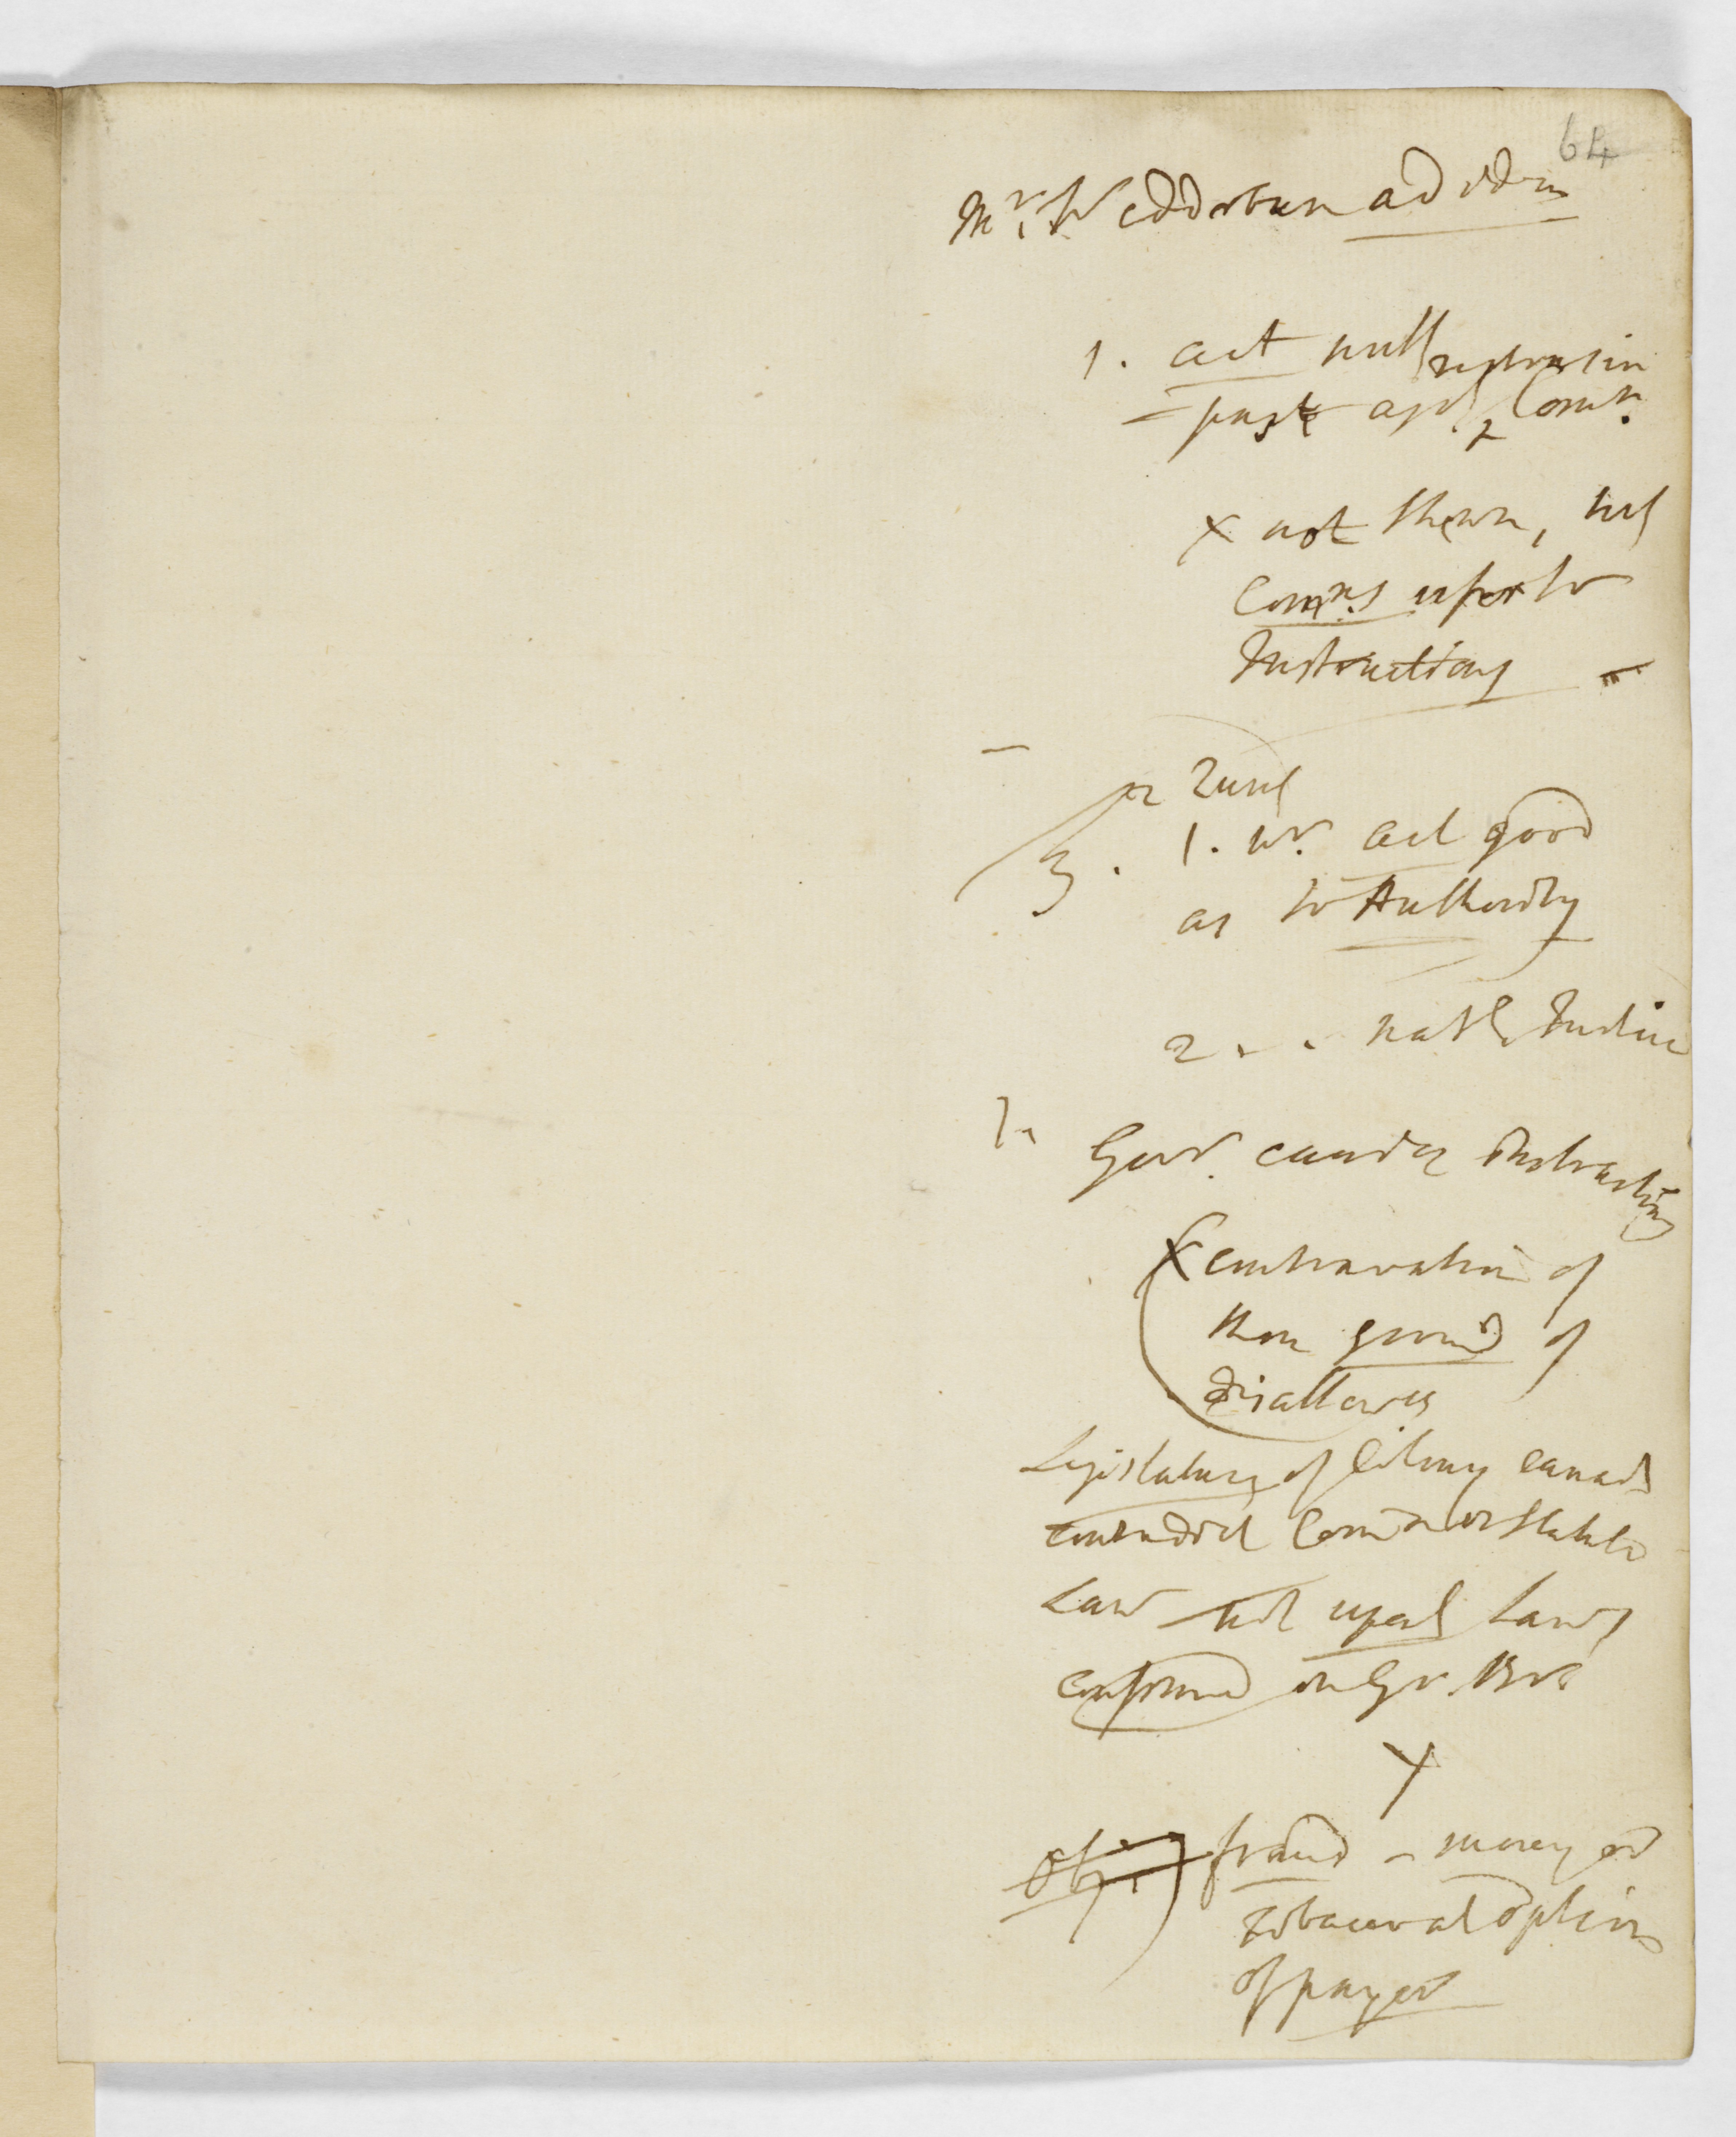 64
Mr. Wedderburn ad idem
1. act null
past agst Comn.
x not shewn, but
Comns refer to
Instructions
2 Qunt
3. 1. wr. act good
as to Authority
2 . . natl Justice
1.
Govr. Instructions
x contravention of
them ground of
disallowce
Legislature of Colony cannot
contradict Comn or Statute
Law not repeal Laws
confirmed in Gr. Brit
x
Obj. fraud - money or
tobacco at option
of payer